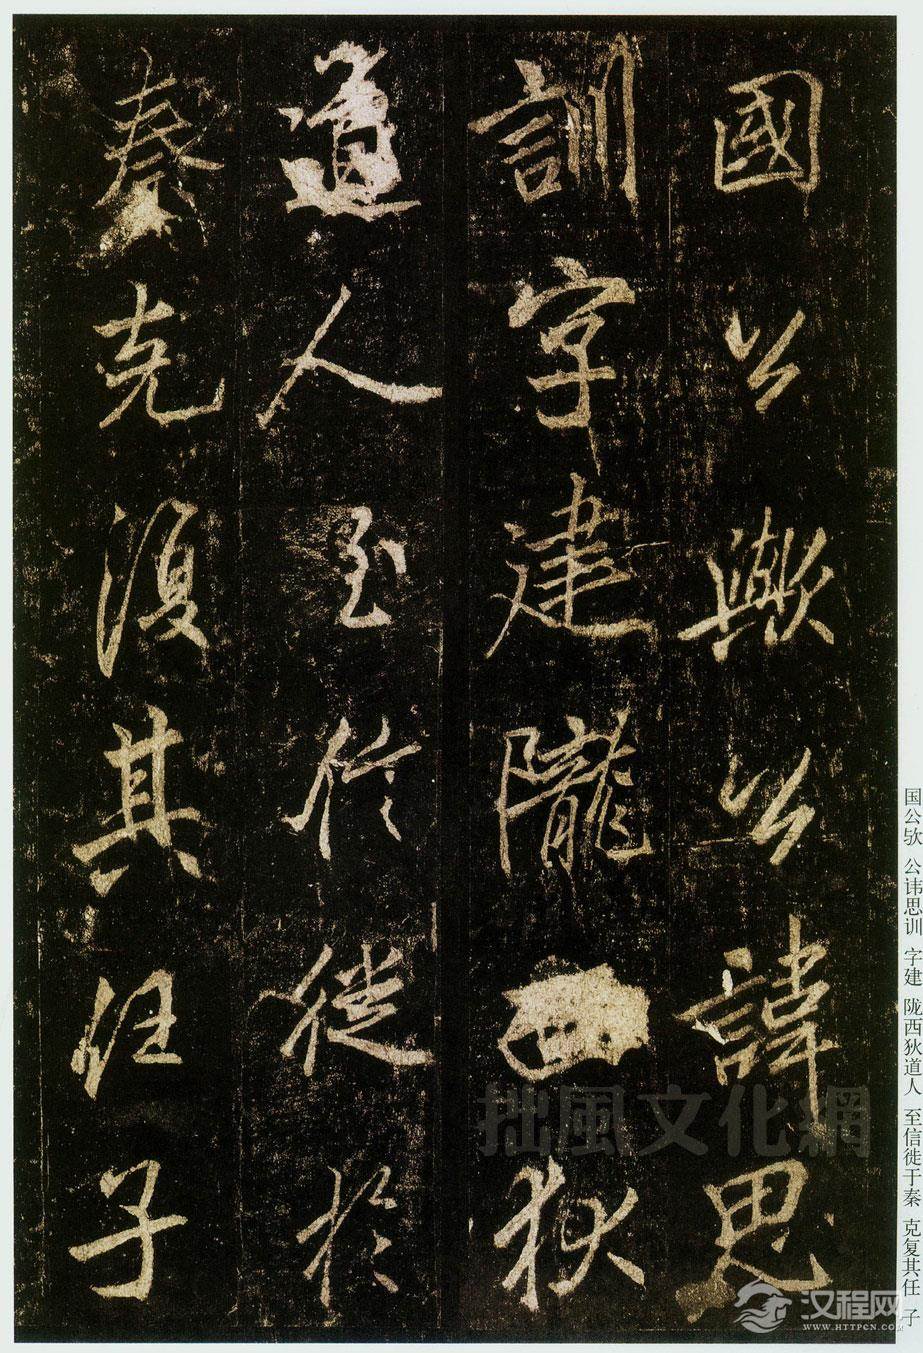 國公歟公諱思
訓字建隴西狄
道人至信徙於
秦克復其任子
国公欤 公讳思训 字建 陇西狄道人 至信徙于秦 克复其任 子
拙風文化網
汉程网
WWW.HTTPCN.COM